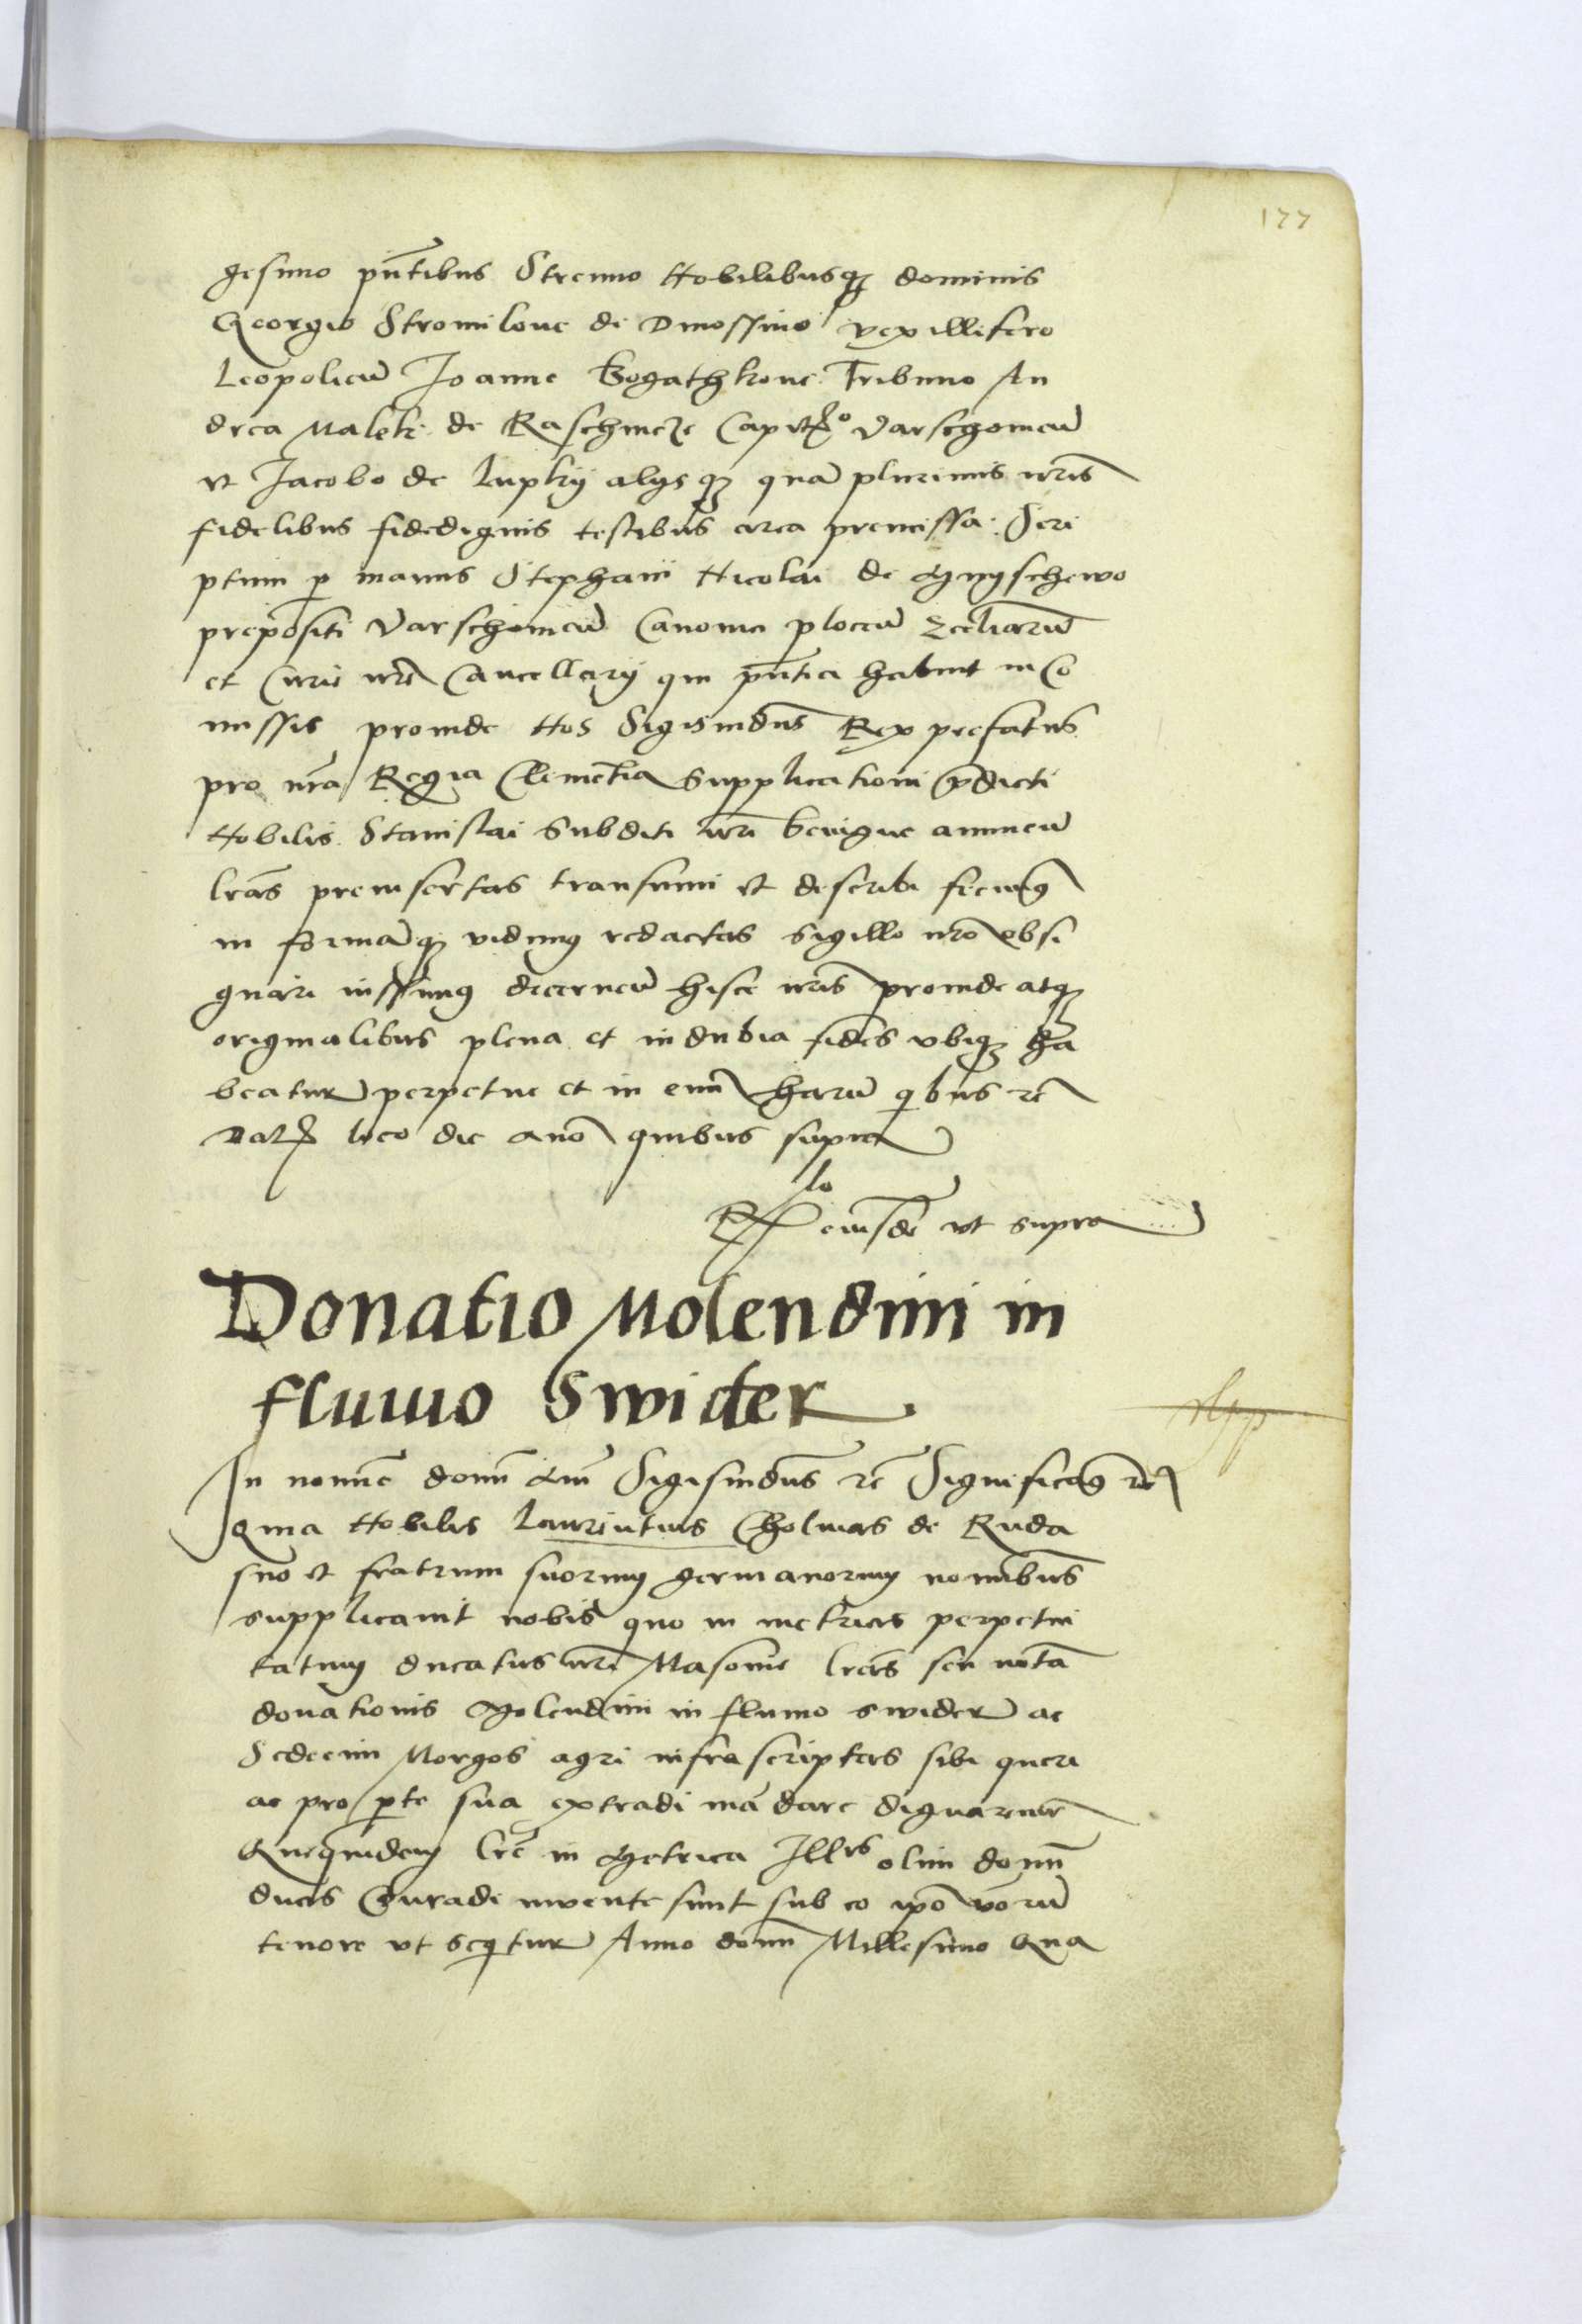 177
gesimo pntibus Strenuo Nobilibusq dominis
Georgio Stromilone de Dmossino vexillifero
Leopolien Joanne Bogathkone Tribuno An
drea Malek de Raschincze Capito Varschovien
et Jacobo de Lupky alysq quam plurimis nris
fidelibus fidedignis testibus circa premissa Scri
ptum p manus Stephani Nicolai de Mnyschewo
prepositi Varschovien Canonici plocen
et Curie nre Cancellary qui pntia habuit in co
missis proinde Nos Sigismdus Rex prefatus
pro nra Regia Clementia supplicationi pdicti
Nobilis Stanislai Subditi nri benigne annuen
lras preinsertas transumi et describi fecimus
in formaq vidimus redactas sigillo nro obsi
gnari iussimus decernen hisce nris proinde atq
originalibus plena et indubia fides ubiq ha
beatur perpetue et in eum harum quibus rei
Dat loco die anno quibus supra
Rlo eiusde ut supra
Donatio Molendini in
fluuio Swider
In nomine domini Am Sigismdus rc Significamus rc
Quia Nobilis Laurintius Cholewas de Ruda
suo et fratrum suorum germanorum nominibus
supplicauit nobis quo in metricis perpetui
tatum ducatus nri Masouie lras seu nota
donationis Molendini in fluuio swider ac
Sedecim Morgos agri infra scriptas sibi queri
ac pro pte sua extradi mandare dignaremur
Quequidem lre in Metrica Illris olim domini
ducis Conradi inuente sunt sub eo ipo verborum
tenore ut sequitur Anno domini Millesimo Qua